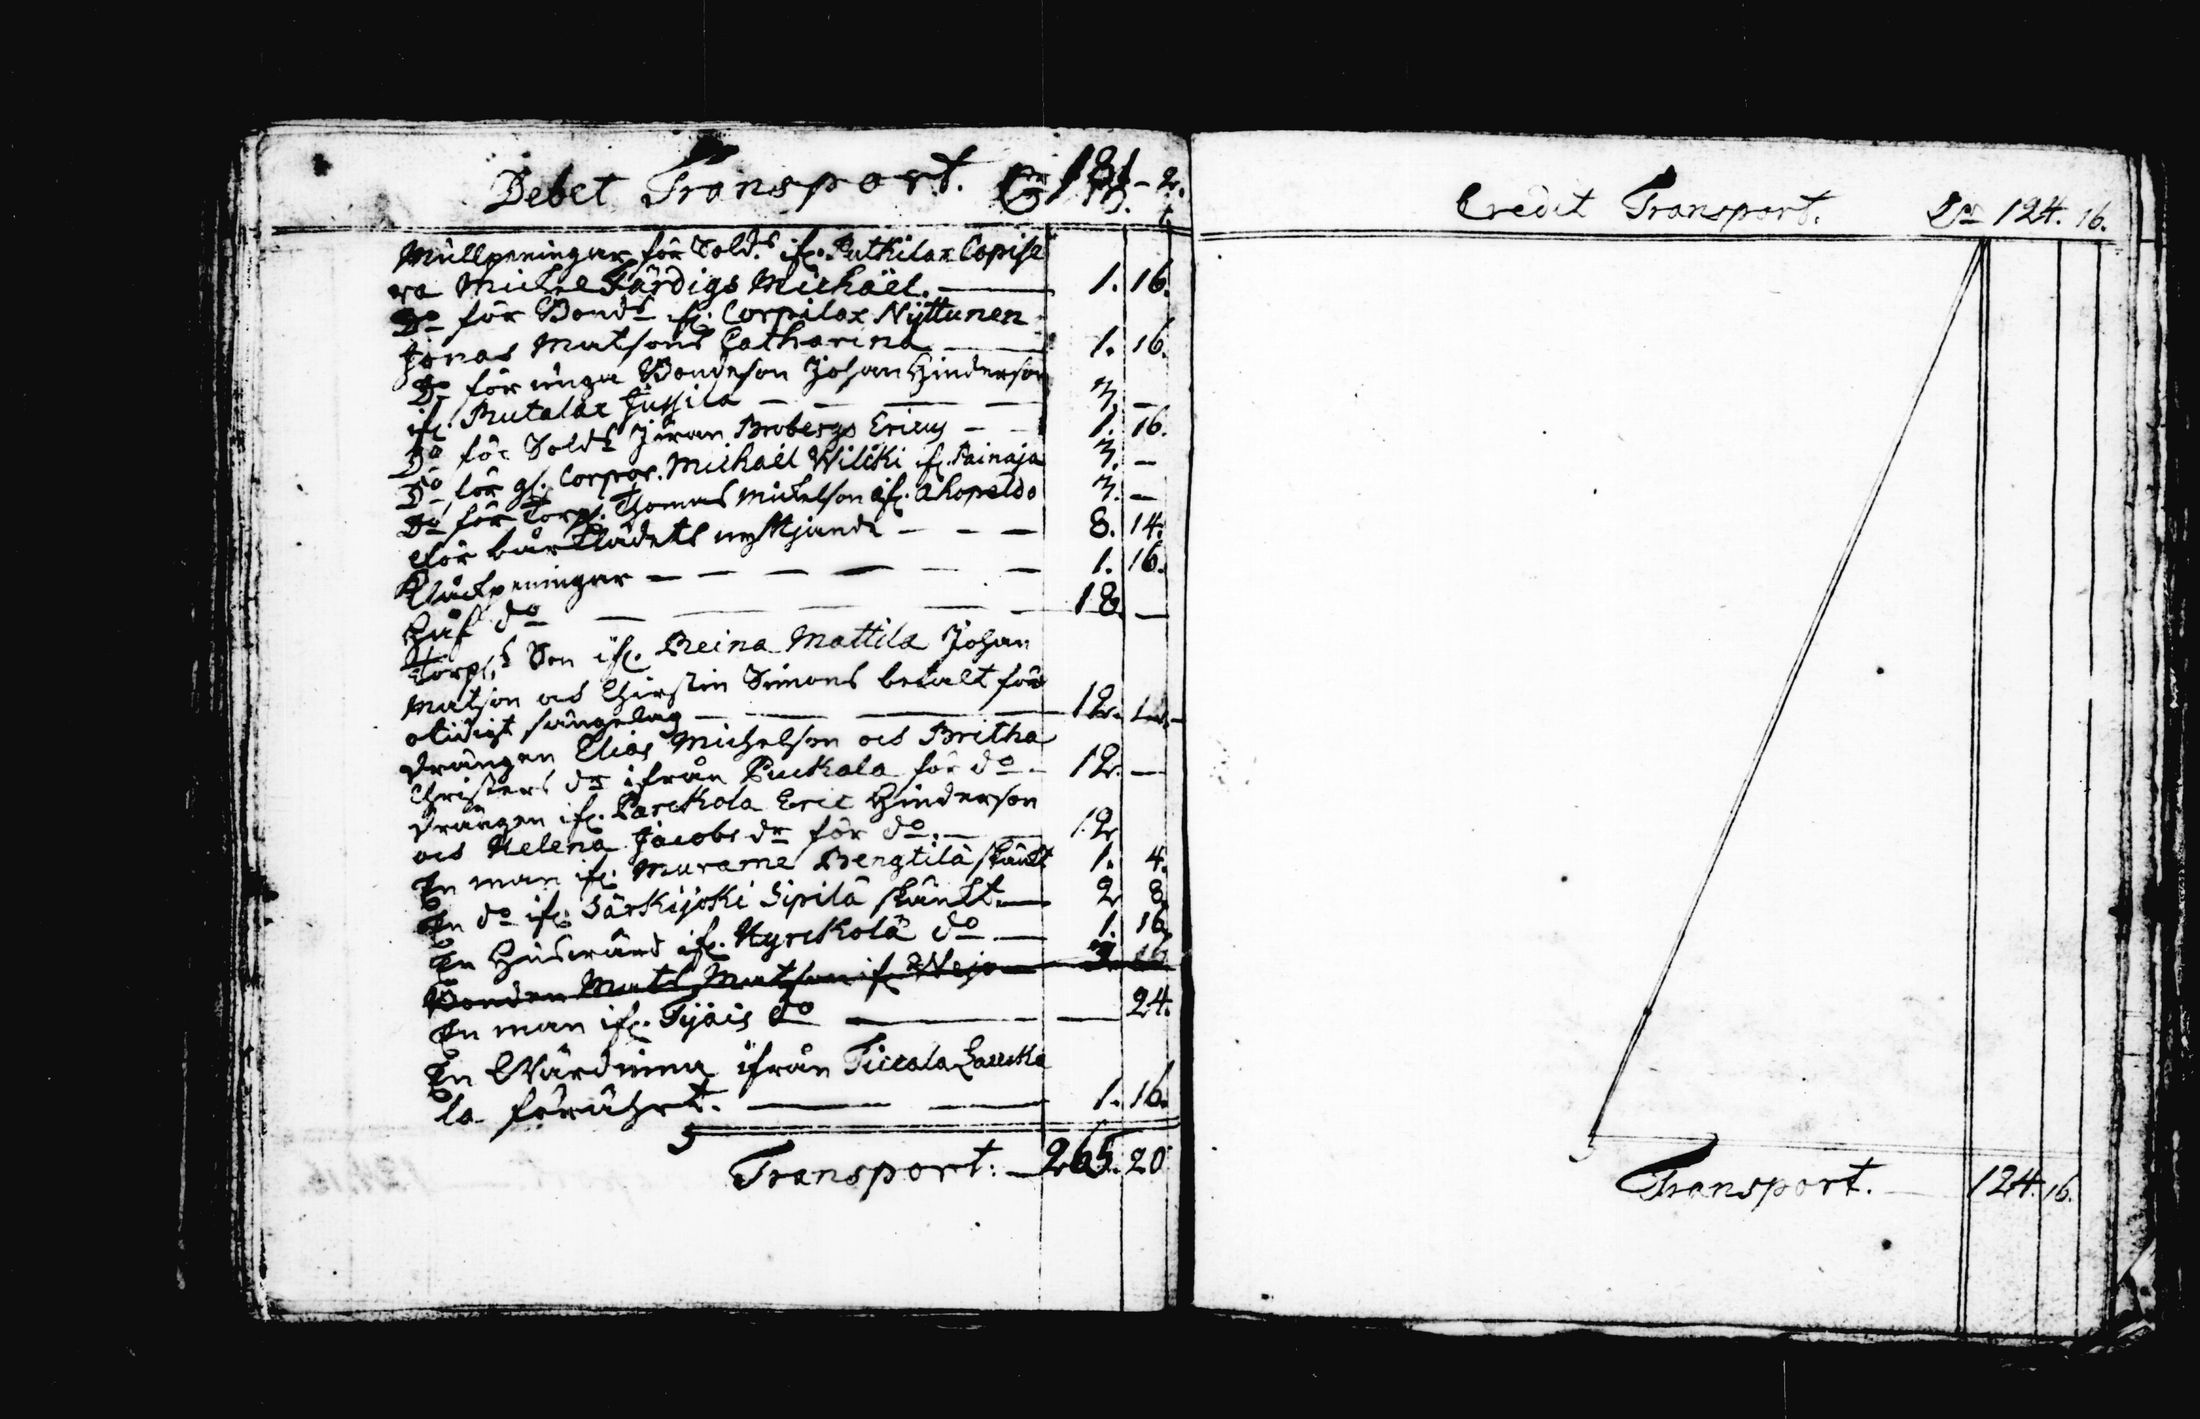 Debet Transport. Dr 181 - 2.
Mullpeningar för Sold:s if. Putkilax Copise
ra Michel Färdigs Michäel. — 1. 16.
Do för Bond:s if. Corpilax Nyttunen
Jonas Matsons Catharina — 1. 16.
Do för unga Bondeson Johan Hinderson
if. Rutalax Jussila — — — 3. —
Do för Sold:s Jöran Brobergs Ericus — 1. 16.
Do för gl. Corpor. Michaël Wilcki if. Painaja 3. —
Do för Torp. Thomas Michelson if. Ahopeldo 3. —
För bårklädets nyttjande — — — 8. 14.
Klåckpeningar — — — — — — 1. 16.
Håf do — — — — — 18. —
Torp:s Son if. Reina Mattila Johan
Matson och Chirstin Simons betalt för
otidigt sängelag — — — 12.
Drängen Elias Michelson och Britha
Christers dr ifrån Puckala för do — 12. —
Drängen if. Parckola Eric Hinderson
och Helena Jacobs dr för do. — — 12
En man if. Murame Bengtilä skänkt 1. 4.
En do if. Särkijoki Sipilä skänkt — 2 8.
En Huswärd if. Kyrckolä do — 1. 16.
Bonden Mats Matson if. Wejo — 3 16
En man if. Tyäis do — — 24.
En Wärdinna ifrån Ticcala Laucka
la förährt. — — 1. 16.
Transport: — 265. 20
Credit Transport. Dr 124. 16.
Transport. — 124. 16.